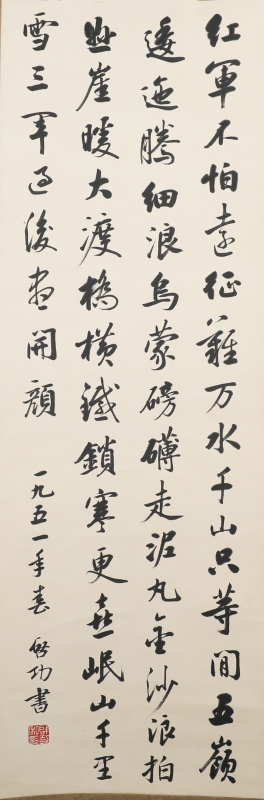 紅軍不怕遠征難万水千山只等閒五嶺
逶迤騰細浪烏蒙磅礴走泥丸金沙浪拍
雲崖暖大渡橋橫鐵鎖寒更喜岷山千里
雪三軍過後盡開顏
一九五一年春 啓功書